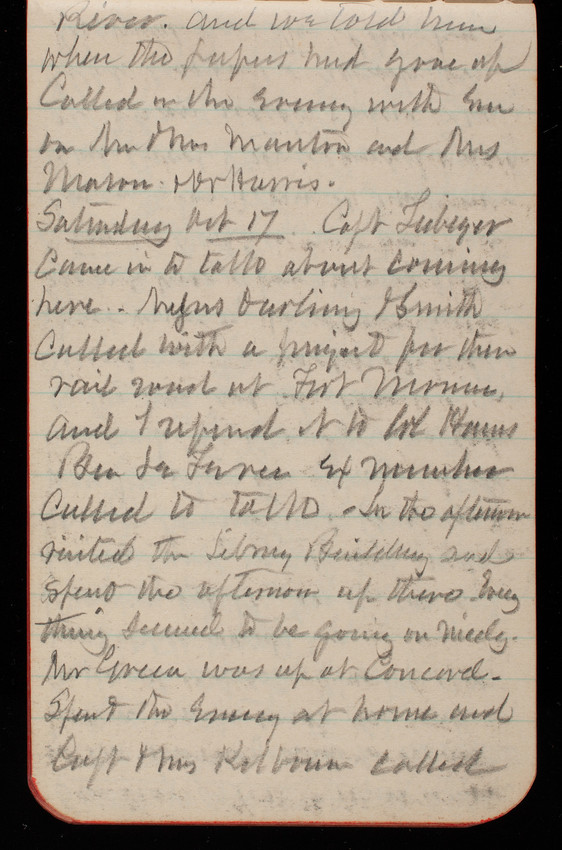 River. and we told him
when the papers had gone up
Called in the Evening with Em
on Mr & Mrs Manton and Mrs
Mason. & Dr Harris.
Saturday Oct 17 Capt Lubeger
Came in to talk about coming
here. Darling & Smith
called with a project for their
rail road at Fort Monroe,
and I referred it to Col Hains
Ben Le Fevre Ex member
Called to talk. In the afternoon
visited the Library Building and
spent the afternoon up there. Every
thing seemed to be going on nicely.
Mr Green was up at Concord.
Spent the Evening at home and
Capt & Mrs Kilbourn called